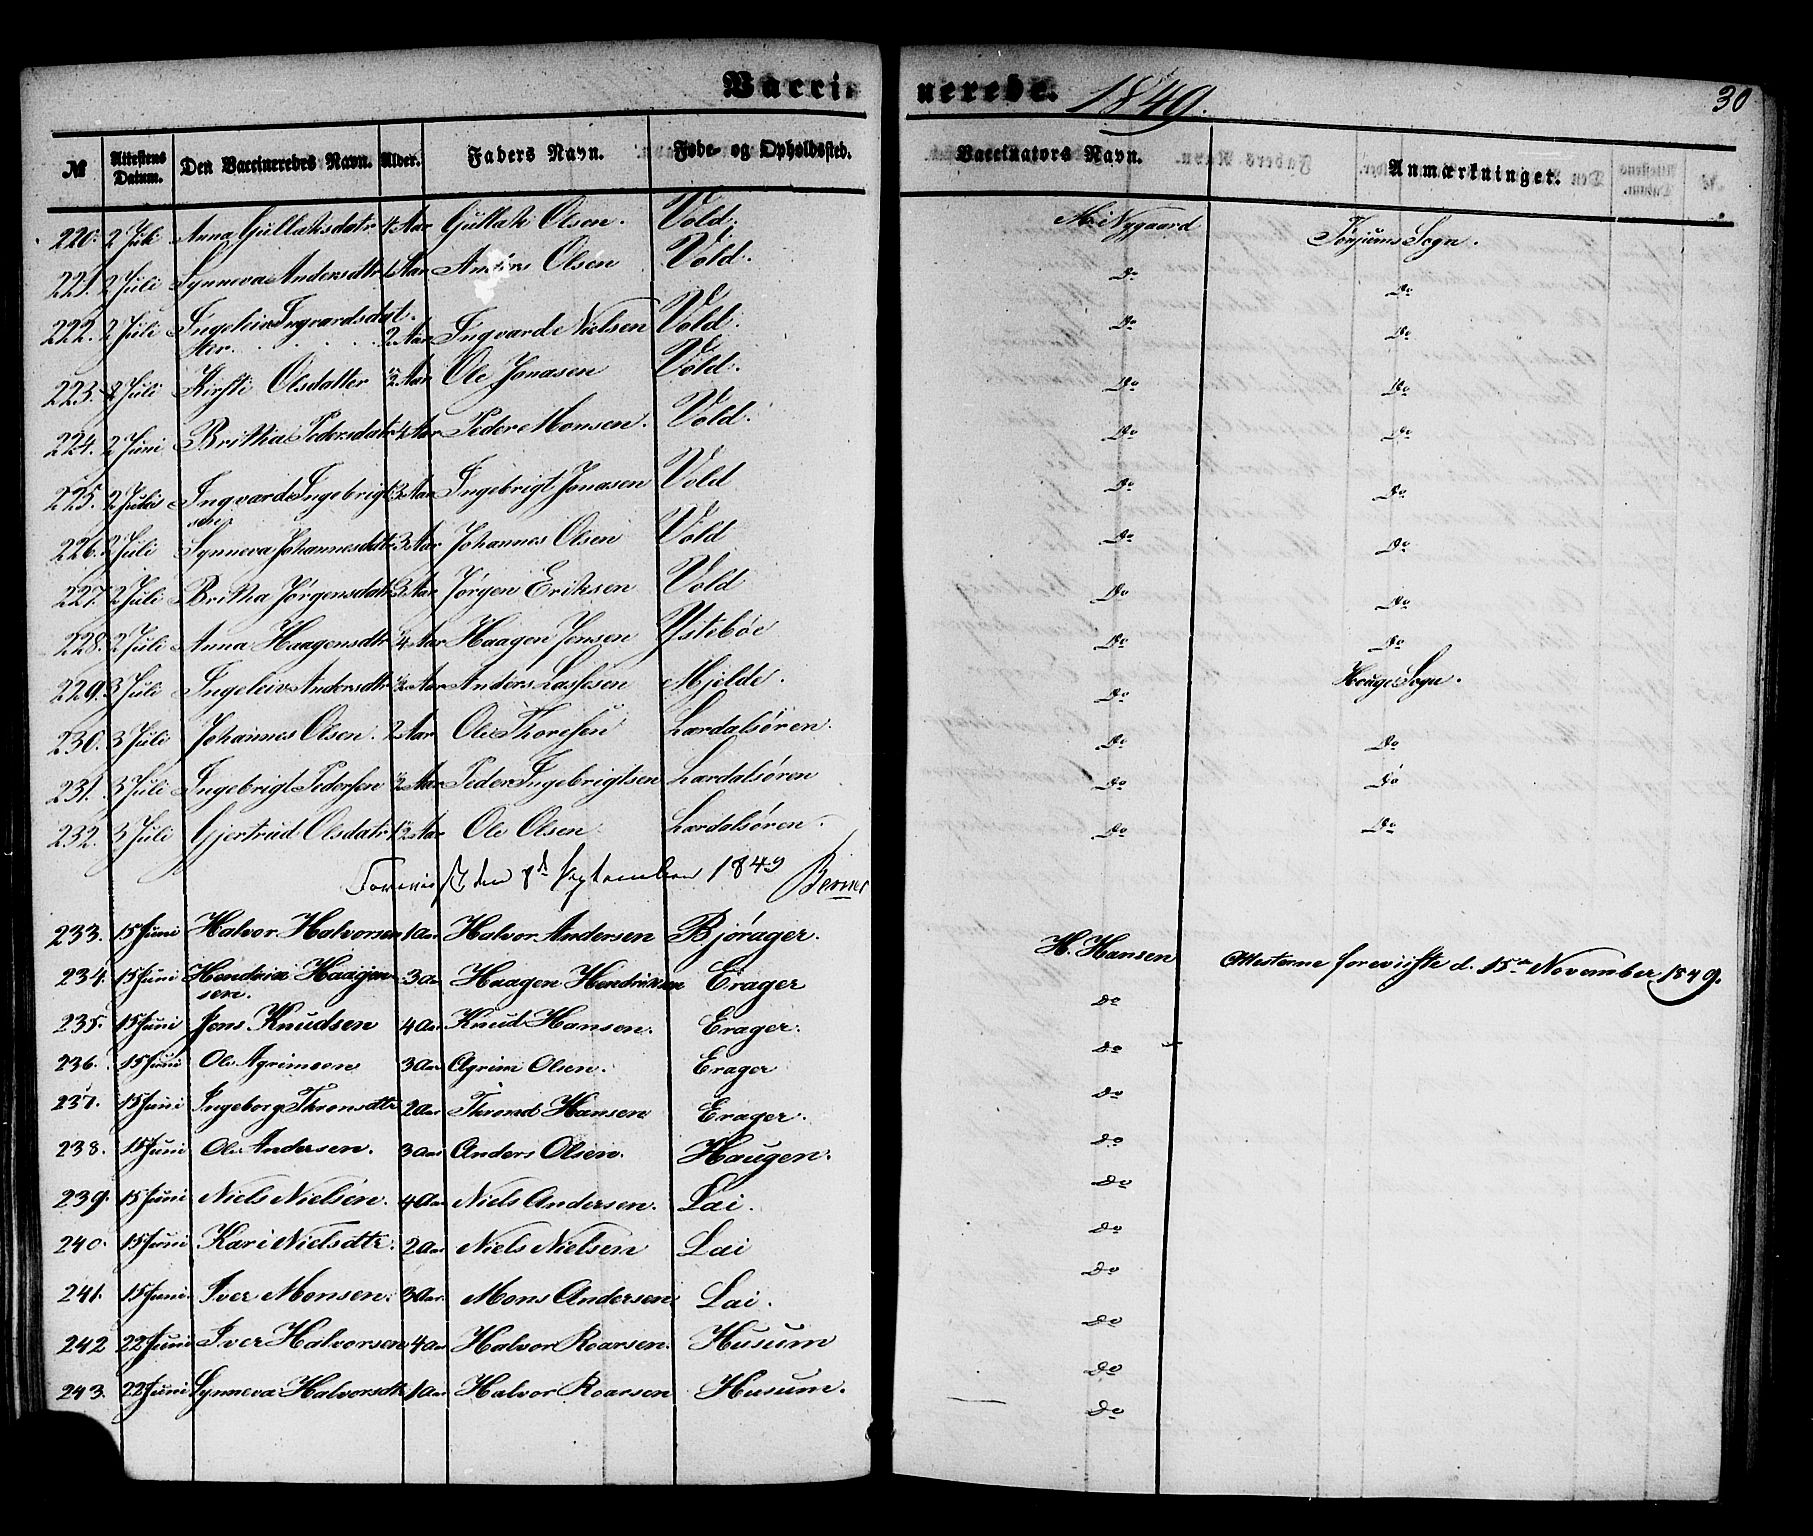 Vaccinerede. 1849. 30
№ Attestens Datum. Den Vaccineredes Navn. Alder. Faders Navn. Føde- og Opholdssted. Vaccinators Navn. Anmærkninger.
220. 2 Juli Anna Gullaksdatr 4 Aar Gullak Olsen. Vold. Nygaard Tønjums Sogn.
221. 2 Juli Synneva Andersdtr Aar Anders Olsen Vold. Do Do
222. 2 Juli Ingeleiv Ingvardsdat- 2 Aar Ingvard Nielsen Vold. Do Do
ter.
223. 2 Juli Kirsti Olsdatter ½ Aar Ole Jonasen Vold. Do Do
224. 2 Juni Britha Pedersdatr Aar Peder Monsen. Vold. Do Do
225. 2 Juli Ingvard Ingebrigt- Aar Ingebrigt Jonasen Vold Do Do
sen
226. 2 Juli Synneva Johannesdtr 3 Aar Johannes Olsen Vold Do Do
227. 2 Juli Britha Jørgensdatr Aar Jørgen Eriksen Vold Do Do
228. 2 Juli Anna Haagensdtr ¼ Aar Haagen Jensen Ystebøe Do Do
229. 3 Juli Ingeleiv Andersdtr ½ Aar Anders Lassesen Mjelde. Do Houge Sogn.
230. 3 Juli Johannes Olsen. 2 Aar Ole Thoresen Lærdalsören. Do Do
231. 3 Juli Ingebrigt Pedersen ½ Aar Peder Ingebrigtsen Lærdalsören Do Do
232. 3 Juli Gjertrud Olsdatr 1½ Aar Ole Olsen Lærdalsören. Do Do
Foreviist den 8de September 1849
233. 15 Juni Halvor Halvorsen 1 Aar Halvor Andersen Bjørager. H. Hansen Attesterne foreviiste d. 15de November 1849.
234. 15 Juni Hendrix Haagen- 3 Aar Haagen Hendriksen Erager do
sen.
235. 15 Juni Jens Knudsen 4 Aar Knud Hansen. Erager. do
236. 15 Juni Ole Agrimsen 3 Aar Agrim Olsen. Erager do
237. 15 Juni Ingeborg Thronsdtr 2 Aar Thrond Hansen Erager. do
238. 15 Juni Ole Andersen. 3 Aar Anders Olsen. Haugen. do
239. 15 Juni Niels Nielsen. 4 Aar Niels Andersen. Lai. do
240. 15 Juni Kari Nielsdtr. 2 Aar Niels Nielsen Lai do
241. 15 Juni. Iver Monsen. 3 Aar. Mons Andersen. Lai. do
242 22 Juni Iver Halvorsen 4 Aar Halvor Roarsen. Husum do
243. 22 Juni Synneva Halvorsdtr 1 Aar Halvor Roarsen Husum. do